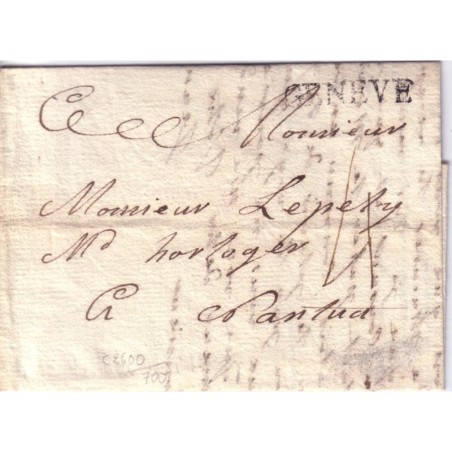 GENEVE
Monsieur
Monsieur Lepety
Md horloger
A Nantua
C2600
700